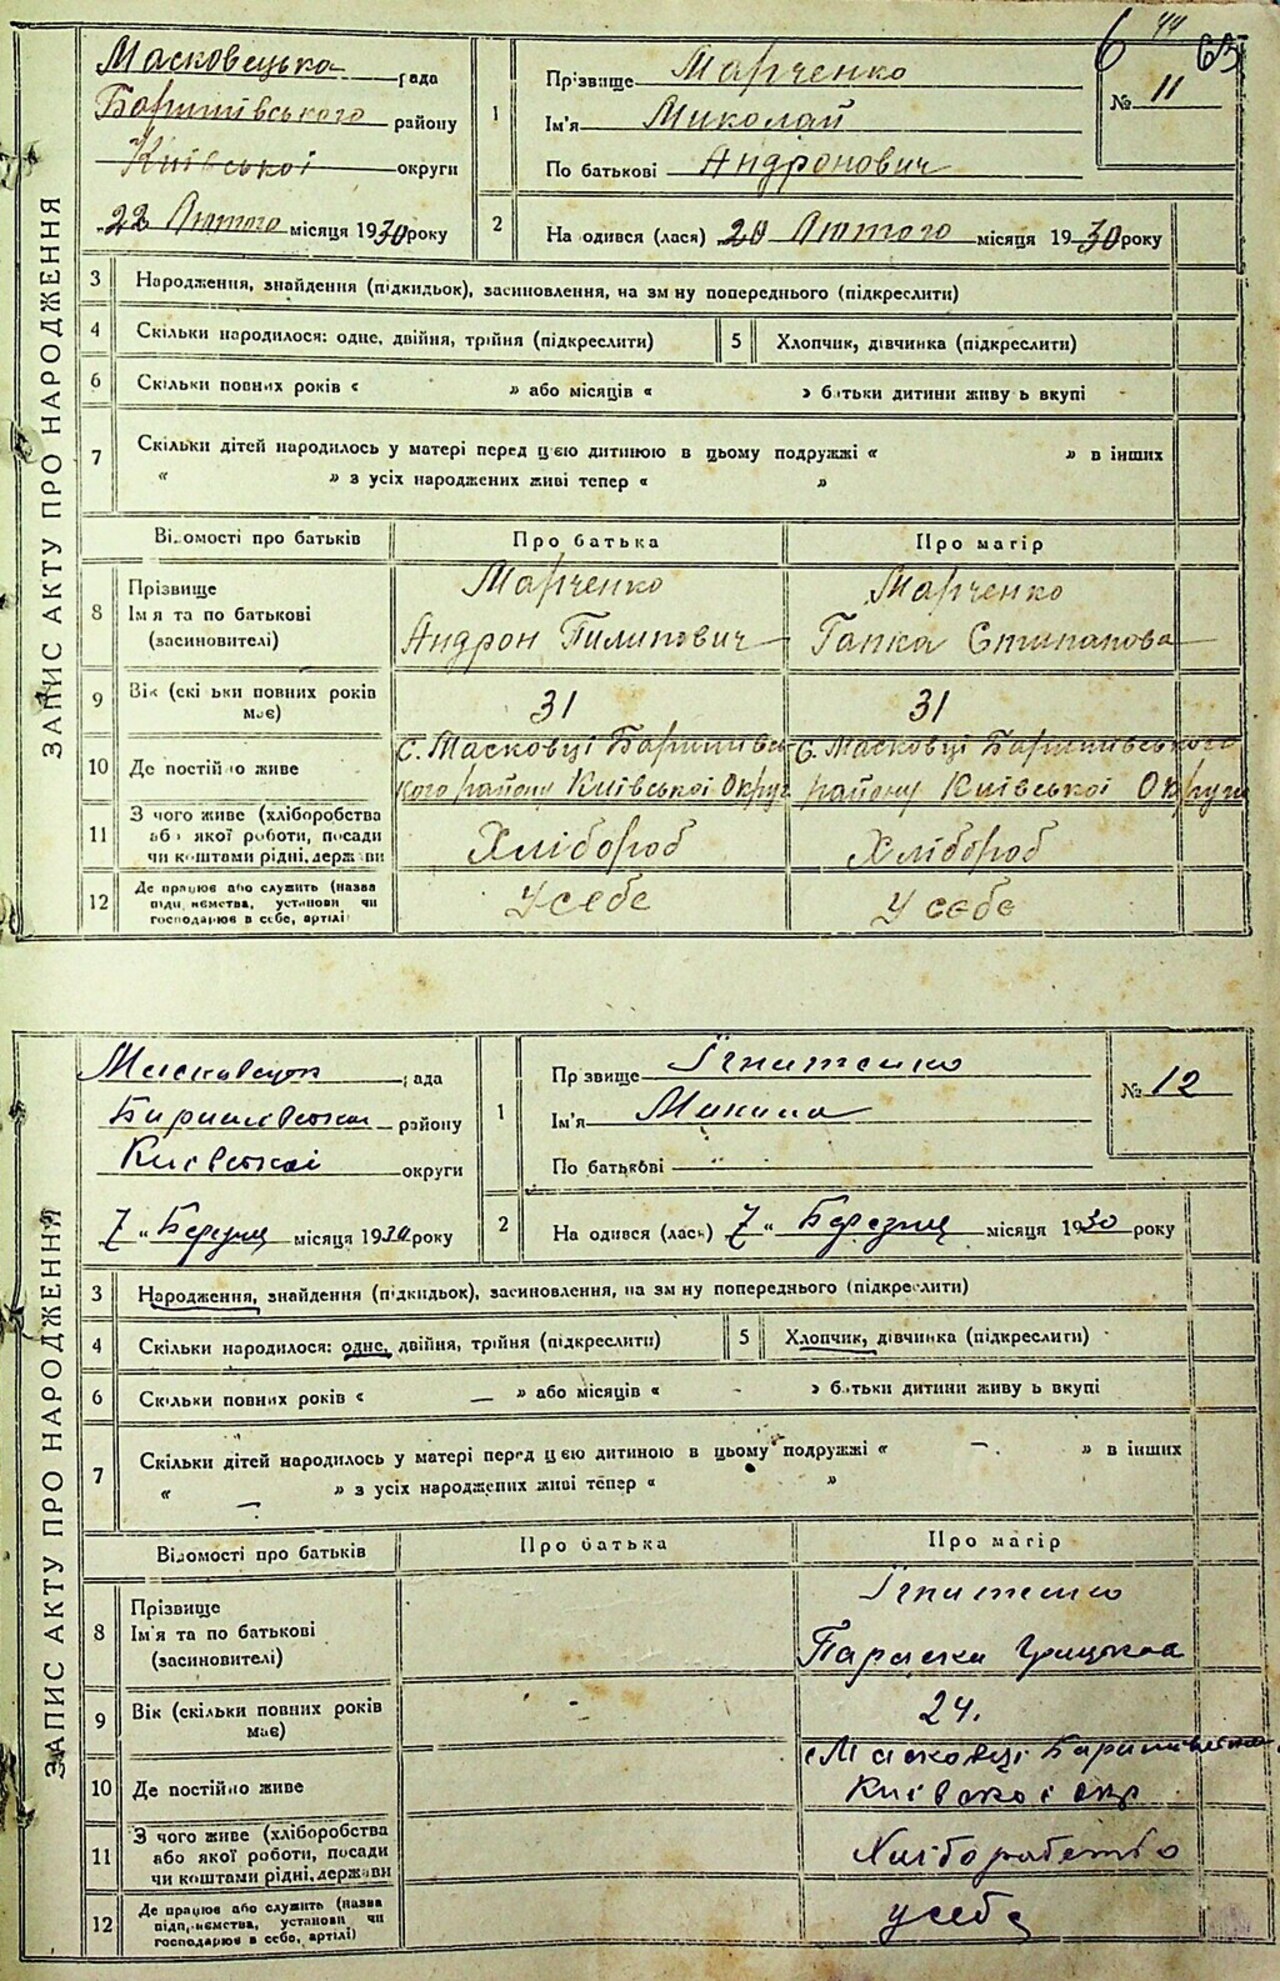 6 44 63
ЗАПИС АКТУ ПРО НАРОДЖЕННЯ
Масковецька рада
Баришівського району
Київської округи
22 Лютого місяця 1930 року
1
Прізвище Марченко
Ім'я Миколай
По батькові Андронович
№ 11
2
На одився (лася) 20 Лютого місяця 1930 року
3 Народження, знайдення (підкидьок), засиновлення, на зм ну попереднього (підкреслити)
4 Скільки народилося: одне, двійня, трійня (підкреслити) 5 Хлопчик, дівчинка (підкреслити)
6 Скільки повних років « » або місяців « » батьки дитини живу ь вкупі
7 Скільки дітей народилось у матері перед цією дитиною в цьому подружжі « » в інших
« » з усіх народжених живі тепер « »
Відомості про батьків Про батька Про матір
8 Прізвище
Ім я та по батькові
(засиновителі)
Марченко
Андрон Пилипович
Марченко
Гапка Степанова
9 Вік (скі ьки повних років
має)
31 31
10 Де постійно живе
С. Масковці Баришівсь-
кого району Київської Округ
С. Масковці Баришівського
району Київської Округи
11 З чого живе (хліборобства
або якої роботи, посади
чи коштами рідні, держави
Хлібороб Хлібороб
12 Де працює або служить (назва
підприємства, установи чи
господарює в себе, артілі
У себе У себе
ЗАПИС АКТУ ПРО НАРОДЖЕННЯ
рада
району
Київської округи
7 « Березня місяця 1930 року
1
Пр звище Ігнатенко
Ім'я Микола
По батькові
№ 12
2
На одився (лась) 7 « Березня місяця 1930 року
3 Народження, знайдення (підкидьок), засиновлення, на зм ну попереднього (підкреслити)
4 Скільки народилося: одне, двійня, трійня (підкреслити) 5 Хлопчик, дівчинка (підкреслити)
6 Скільки повних років « — » або місяців « - » батьки дитини живу ь вкупі
7 Скільки дітей народилось у матері перед цією дитиною в цьому подружжі « — » в інших
« — » з усіх народжених живі тепер « »
Відомості про батьків Про батька Про матір
8 Прізвище
Ім'я та по батькові
(засиновителі)
Ігнатенко
Параска
9 Вік (скільки повних років
має)
24.
10 Де постійно живе
с Масковці
Київської окр
11 З чого живе (хліборобства
або якої роботи, посади
чи коштами рідні, держави
Хліборобство
12 Де працює або служить (назва
підприємства, установи чи
господарює в себе, артілі)
у себе